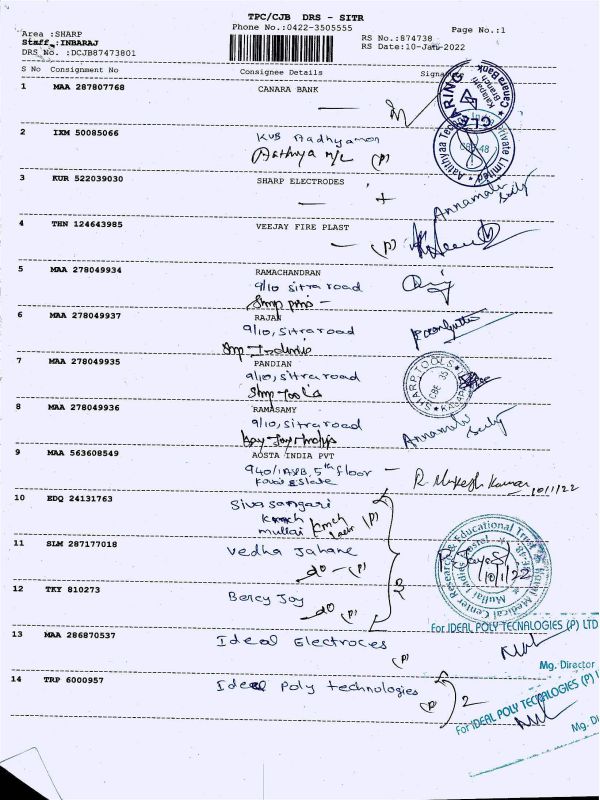 TPC/CJB DRS - SITR
Phone No.:0422-3505555
Page No.:1
Area :SHARP
Staff :INBARAJ
DRS No. :DCJB87473801
RS No.:874738
RS Date:10-Jan-2022
S No Consignment No Consignee Details Signature
1 MAA 287807768 CANARA BANK
2 IXM 50085066 KVB Aadhyamon
Aathya m/c (P)
3 KUR 522039030 SHARP ELECTRODES
Annamalai
4 THN 124643985 VEEJAY FIRE PLAST
(P)
5 MAA 278049934 RAMACHANDRAN
9/10 sitra road
6 MAA 278049937 RAJAN
9/10, sitra road
7 MAA 278049935 PANDIAN
9/10, sitra road
Sharp Tools
SHARP TOOLS
8 MAA 278049936 RAMASAMY
9/10, sitra road
Annamalai
9 MAA 563608549 AOSTA INDIA PVT
940/1A&B, 5th floor
Estate
R. Mukesh Kumar
10/1/22
10 EDQ 24131763 Sivasangari
kmch
mullai kmch
(P)
11 SLM 287177018 Vedha Jahane
do - (P)
10/1/22
12 TKY 810273 Bercy Joy
do (P)
For IDEAL POLY TECNALOGIES (P) LTD
13 MAA 286870537 Ideal Electroces
(P)
Mg. Director
14 TRP 6000957 Ideal Poly technologies
(P) 2
For IDEAL POLY TECNALOGIES (P) L
Mg. Di